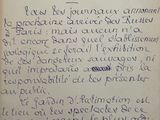 Tous les journaux annoncent
la prochaine arrivée des Russes
à Paris; mais aucun n'a
dit encore dans quel établissement
zoologique aurait l'exhibition
de ces dangereux sauvages, ni
quel imprésario a pris la
responsabilité de les présenter
au public.
Le Jardin d'Acclimation est
le lieu où les spectacles de ce